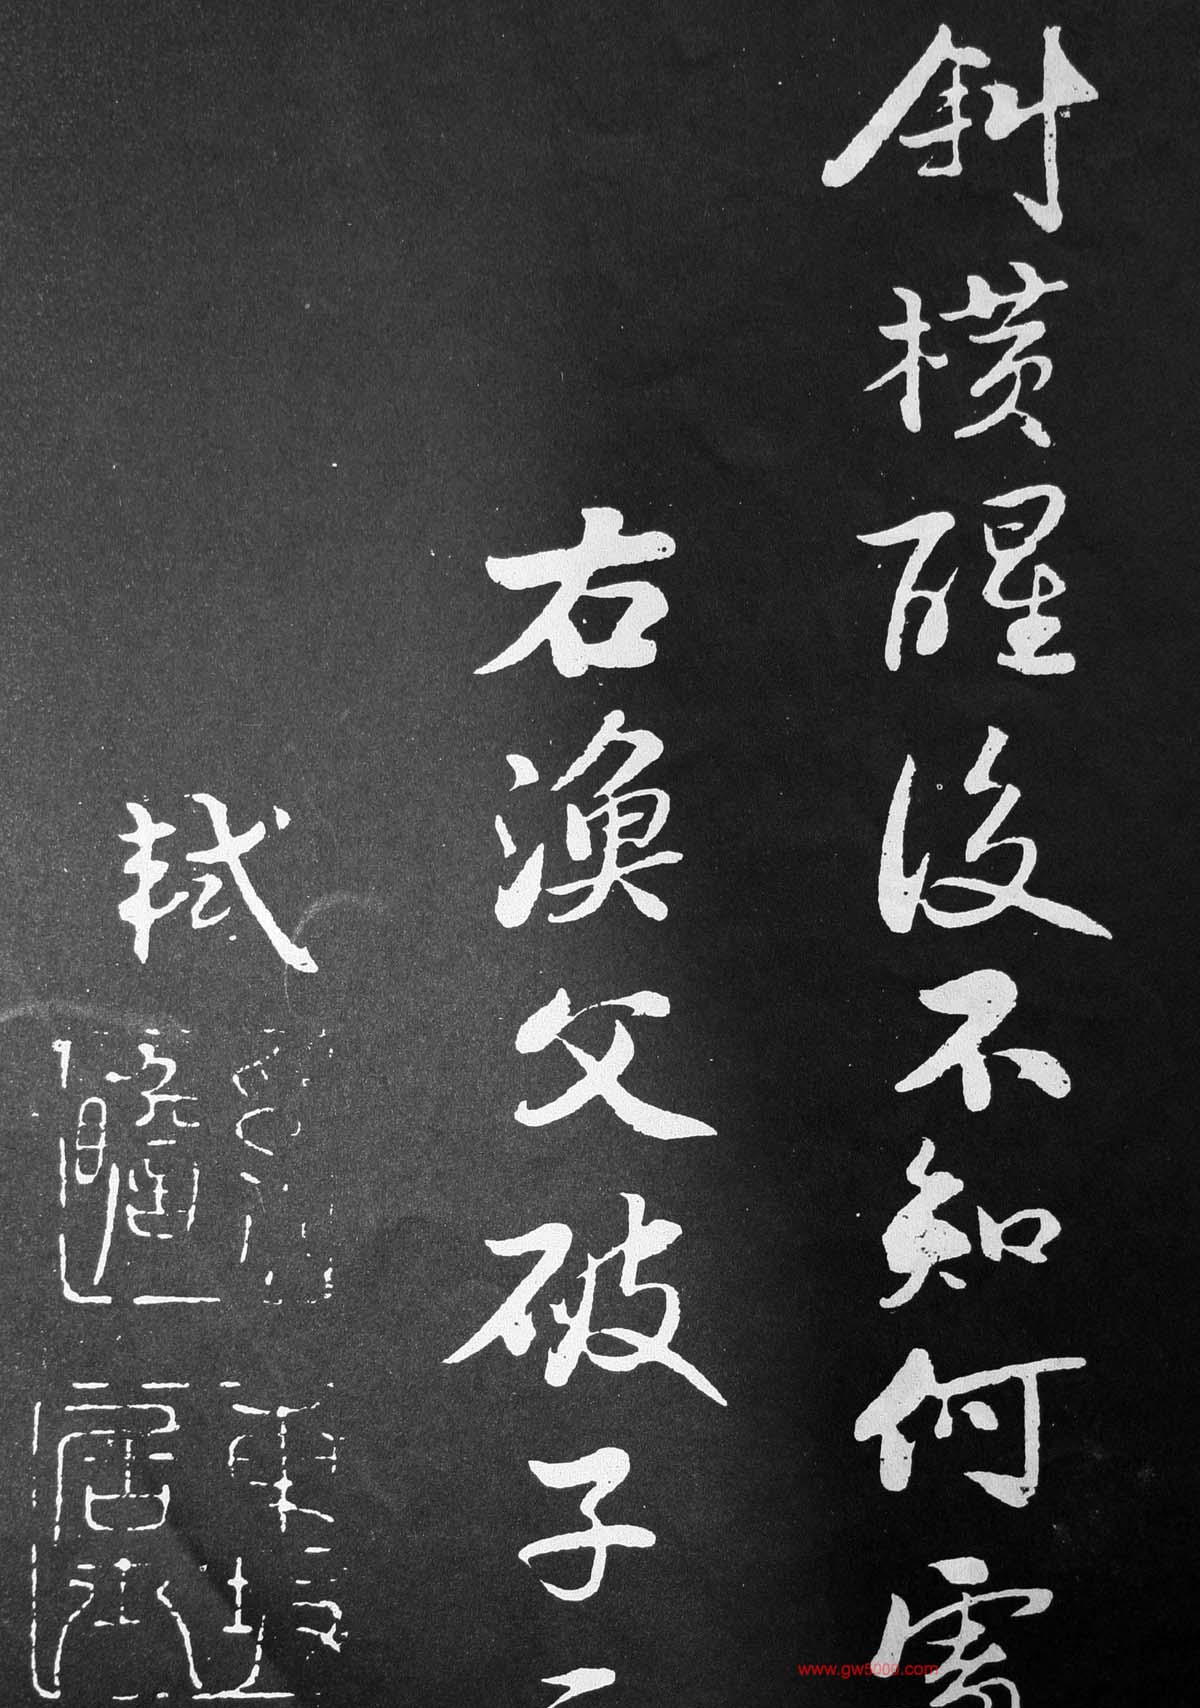 斜橫醒後不知何處
右漁父破子
軾
東坡居士
www.gw5000.com